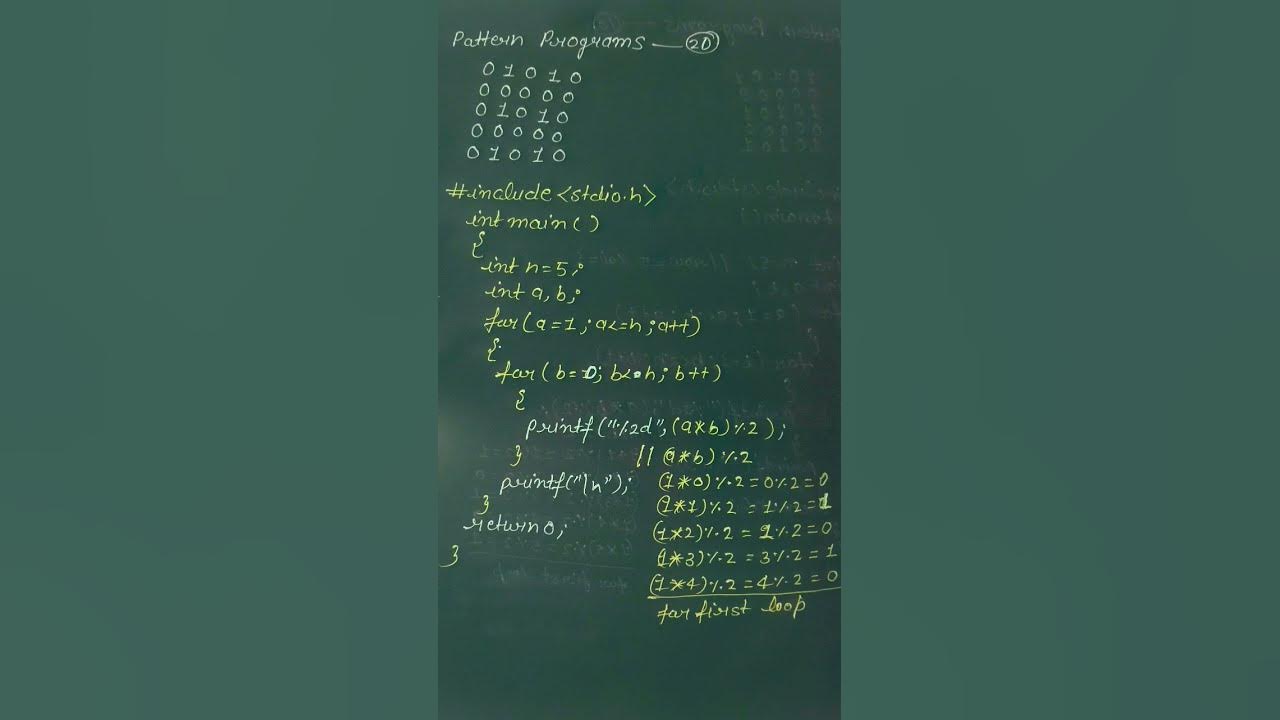 Pattern Programs — 20
0 1 0 1 0
0 0 0 0 0
0 1 0 1 0
0 0 0 0 0
0 1 0 1 0
#include <stdio.h>
int main( )
{
int n=5;
int a, b;
for(a=1; a<=n; a++)
{
for(b=0; b<n; b++)
{
printf("%2d", (a*b)%2);
} // (a*b)%2
printf("\n"); (1*0)%2 = 0%2 = 0
} (1*1)%2 = 1%2 = 1
return 0; (1*2)%2 = 2%2 = 0
} (1*3)%2 = 3%2 = 1
(1*4)%2 = 4%2 = 0
for first loop